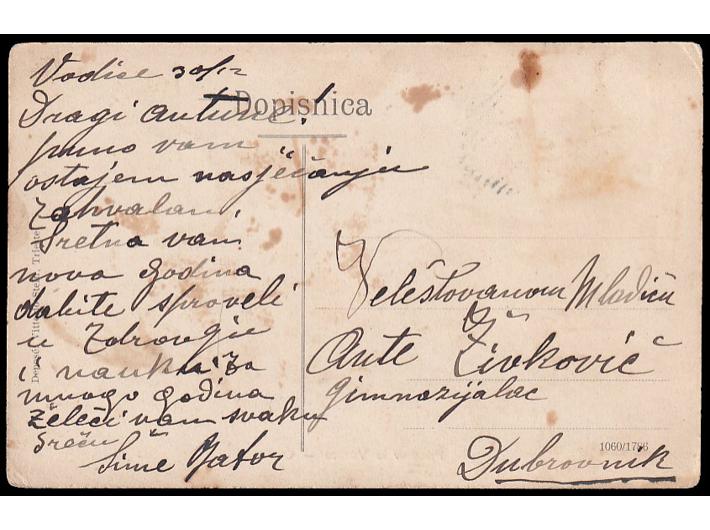 Vodice 30/12
Dopisnica
Dragi Antune!
puno vam
ostajem na sjećanju
Zahvalan
Sretna vam
nova godina
da bite sproveli
u Zdravju
i nauki za
mnogo godina
želeći vam svaku
sreću
Šime
Veleštovanom Mladiću
Ante Živković
gimnazijalac
Dubrovnik
1060/1786